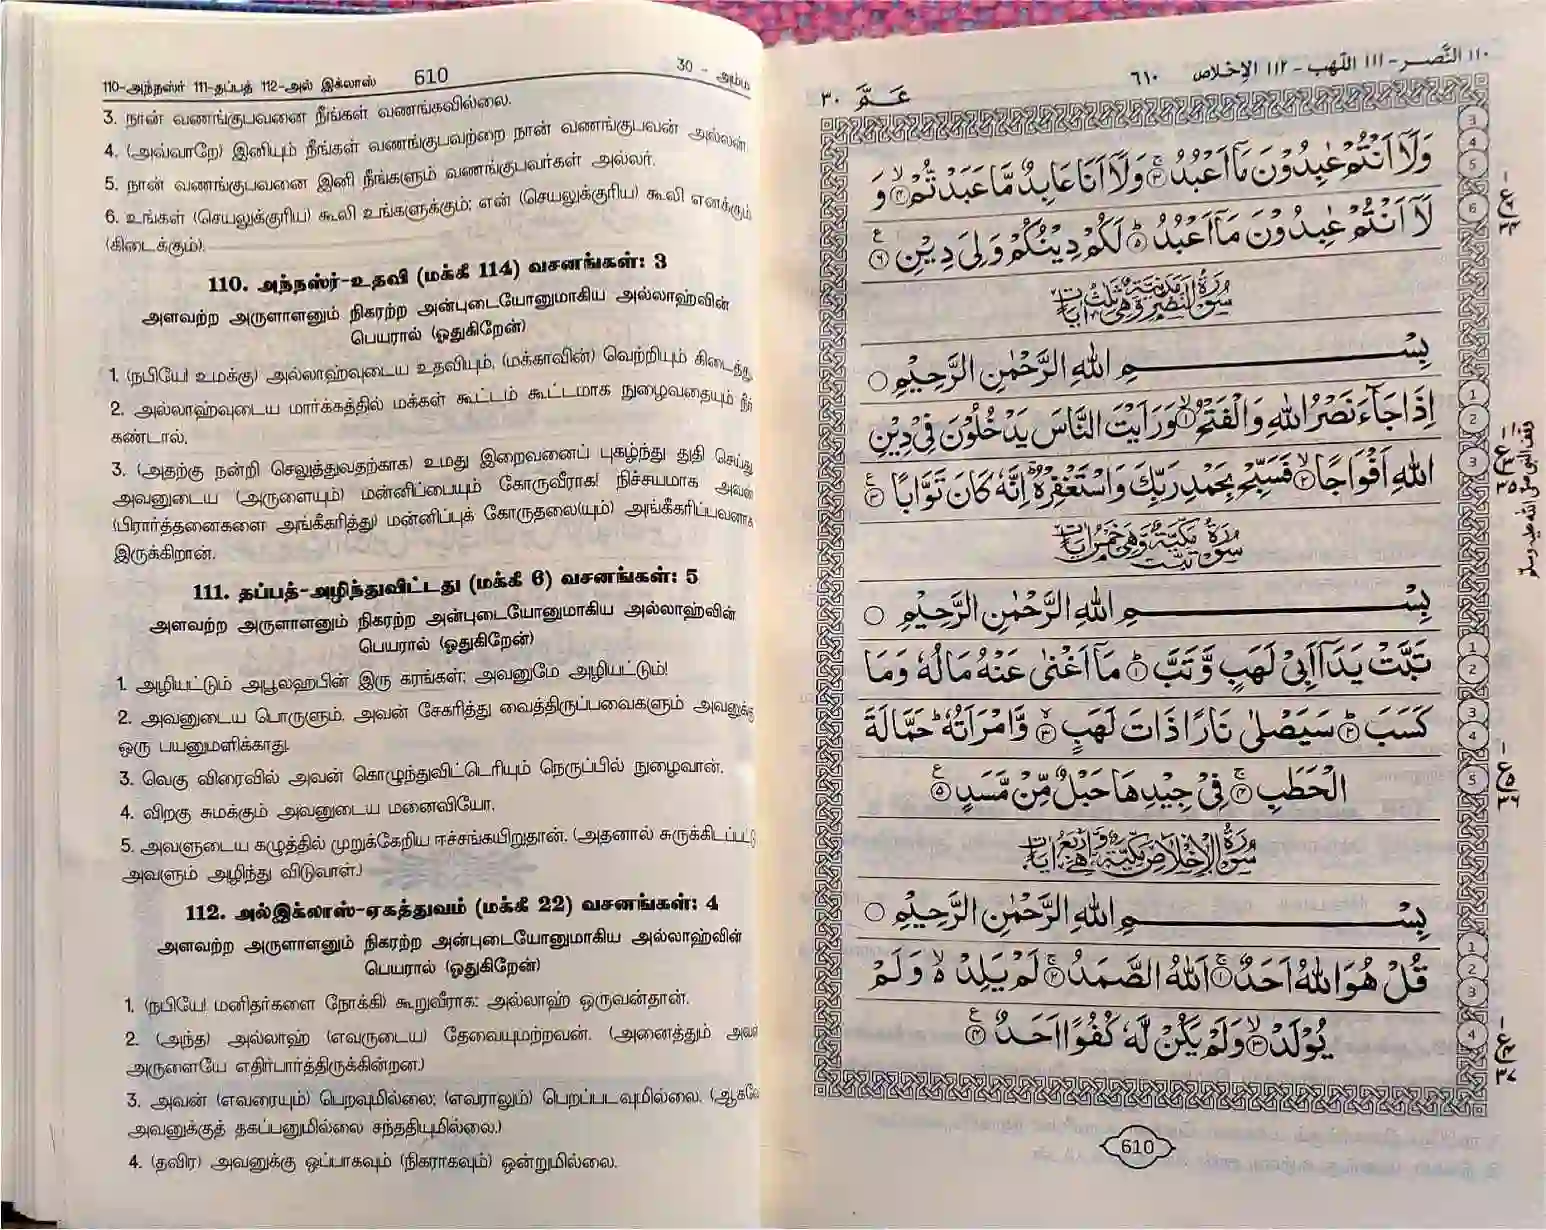 110-அந்நஸ்ர் 111-தப்பத் 112-அல் இக்லாஸ் 610 30 - அம்ம
3. நான் வணங்குபவனை நீங்கள் வணங்கவில்லை.
4. (அவ்வாறே) இனியும் நீங்கள் வணங்குபவற்றை நான் வணங்குபவன் அல்லன்.
5. நான் வணங்குபவனை இனி நீங்களும் வணங்குபவர்கள் அல்லர்.
6. உங்கள் (செயலுக்குரிய) கூலி உங்களுக்கும்; என் (செயலுக்குரிய) கூலி எனக்கும்
(கிடைக்கும்).
110. அந்நஸ்ர்-உதவி (மக்கீ 114) வசனங்கள்: 3
அளவற்ற அருளாளனும் நிகரற்ற அன்புடையோனுமாகிய அல்லாஹ்வின்
பெயரால் (ஓதுகிறேன்)
1. (நபியே! உமக்கு) அல்லாஹ்வுடைய உதவியும், (மக்காவின்) வெற்றியும் கிடைத்து,
2. அல்லாஹ்வுடைய மார்க்கத்தில் மக்கள் கூட்டம் கூட்டமாக நுழைவதையும் நீர்
கண்டால்,
3. (அதற்கு நன்றி செலுத்துவதற்காக) உமது இறைவனைப் புகழ்ந்து துதி செய்து
அவனுடைய (அருளையும்) மன்னிப்பையும் கோருவீராக! நிச்சயமாக அவன்
(பிரார்த்தனைகளை அங்கீகரித்து) மன்னிப்புக் கோருதலை(யும்) அங்கீகரிப்பவனாக
இருக்கிறான்.
111. தப்பத்-அழிந்துவிட்டது (மக்கீ 6) வசனங்கள்: 5
அளவற்ற அருளாளனும் நிகரற்ற அன்புடையோனுமாகிய அல்லாஹ்வின்
பெயரால் (ஓதுகிறேன்)
1. அழியட்டும் அபூலஹபின் இரு கரங்கள்; அவனுமே அழியட்டும்!
2. அவனுடைய பொருளும், அவன் சேகரித்து வைத்திருப்பவைகளும் அவனுக்கு
ஒரு பயனுமளிக்காது.
3. வெகு விரைவில் அவன் கொழுந்துவிட்டெரியும் நெருப்பில் நுழைவான்.
4. விறகு சுமக்கும் அவனுடைய மனைவியோ,
5. அவளுடைய கழுத்தில் முறுக்கேறிய ஈச்சங்கயிறுதான். (அதனால் சுருக்கிடப்பட்டு
அவளும் அழிந்து விடுவாள்.)
112. அல்இக்லாஸ்-ஏகத்துவம் (மக்கீ 22) வசனங்கள்: 4
அளவற்ற அருளாளனும் நிகரற்ற அன்புடையோனுமாகிய அல்லாஹ்வின்
பெயரால் (ஓதுகிறேன்)
1. (நபியே! மனிதர்களை நோக்கி) கூறுவீராக: அல்லாஹ் ஒருவன்தான்.
2. (அந்த) அல்லாஹ் (எவருடைய) தேவையுமற்றவன். (அனைத்தும் அவன்
அருளையே எதிர்பார்த்திருக்கின்றன.)
3. அவன் (எவரையும்) பெறவுமில்லை; (எவராலும்) பெறப்படவுமில்லை. (ஆகவே
அவனுக்குத் தகப்பனுமில்லை சந்ததியுமில்லை.)
4. (தவிர) அவனுக்கு ஒப்பாகவும் (நிகராகவும்) ஒன்றுமில்லை.
١١٠ النَّصر - ١١١ اللَّهب - ١١٢ الإخلاص ٦١٠ عَمَّ ٣٠
وَلَآ اَنْتُمْ عٰبِدُوْنَ مَآ اَعْبُدُ ۚ‏﴿۳﴾ وَلَآ اَنَا عَابِدٌ مَّا عَبَدْتُّمْ ۙ‏﴿۴﴾ وَ
لَآ اَنْتُمْ عٰبِدُوْنَ مَآ اَعْبُدُ ؕ‏﴿۵﴾ لَكُمْ دِيْنُكُمْ وَلِيَ دِيْنِ‏ ﴿۶﴾
سُوْرَةُ النَّصْرِ مَدَنِيَّةٌ وَّهِيَ ثَلٰثُ اٰيَاتٍ
بِسْمِ اللهِ الرَّحْمٰنِ الرَّحِيْمِ
اِذَا جَآءَ نَصْرُ اللهِ وَالْفَتْحُ ۙ‏﴿۱﴾ وَرَاَيْتَ النَّاسَ يَدْخُلُوْنَ فِيْ دِيْنِ
اللهِ اَفْوَاجًا ۙ‏﴿۲﴾ فَسَبِّحْ بِحَمْدِ رَبِّكَ وَاسْتَغْفِرْهُ ؔؕ اِنَّهٗ كَانَ تَوَّابًا‏ ﴿۳﴾
سُوْرَةُ تَبَّتْ مَكِّيَّةٌ وَّهِيَ خَمْسُ اٰيَاتٍ
بِسْمِ اللهِ الرَّحْمٰنِ الرَّحِيْمِ
تَبَّتْ يَدَآ اَبِيْ لَهَبٍ وَّتَبَّ ؕ‏﴿۱﴾ مَآ اَغْنٰى عَنْهُ مَالُهٗ وَمَا
كَسَبَ ؕ‏﴿۲﴾ سَيَصْلٰى نَارًا ذَاتَ لَهَبٍ ۚۖ‏﴿۳﴾ وَّامْرَاَتُهٗ ؕ حَمَّالَةَ
الْحَطَبِ ۚ‏﴿۴﴾ فِيْ جِيْدِهَا حَبْلٌ مِّنْ مَّسَدٍ‏ ﴿۵﴾
سُوْرَةُ الْاِخْلَاصِ مَكِّيَّةٌ وَّهِيَ اَرْبَعُ اٰيَاتٍ
بِسْمِ اللهِ الرَّحْمٰنِ الرَّحِيْمِ
قُلْ هُوَ اللهُ اَحَدٌ ۚ‏﴿۱﴾ اَللهُ الصَّمَدُ ۚ‏﴿۲﴾ لَمْ يَلِدْ ۙ وَلَمْ
يُوْلَدْ ۙ‏﴿۳﴾ وَلَمْ يَكُنْ لَّهٗ كُفُوًا اَحَدٌ‏ ﴿۴﴾
610